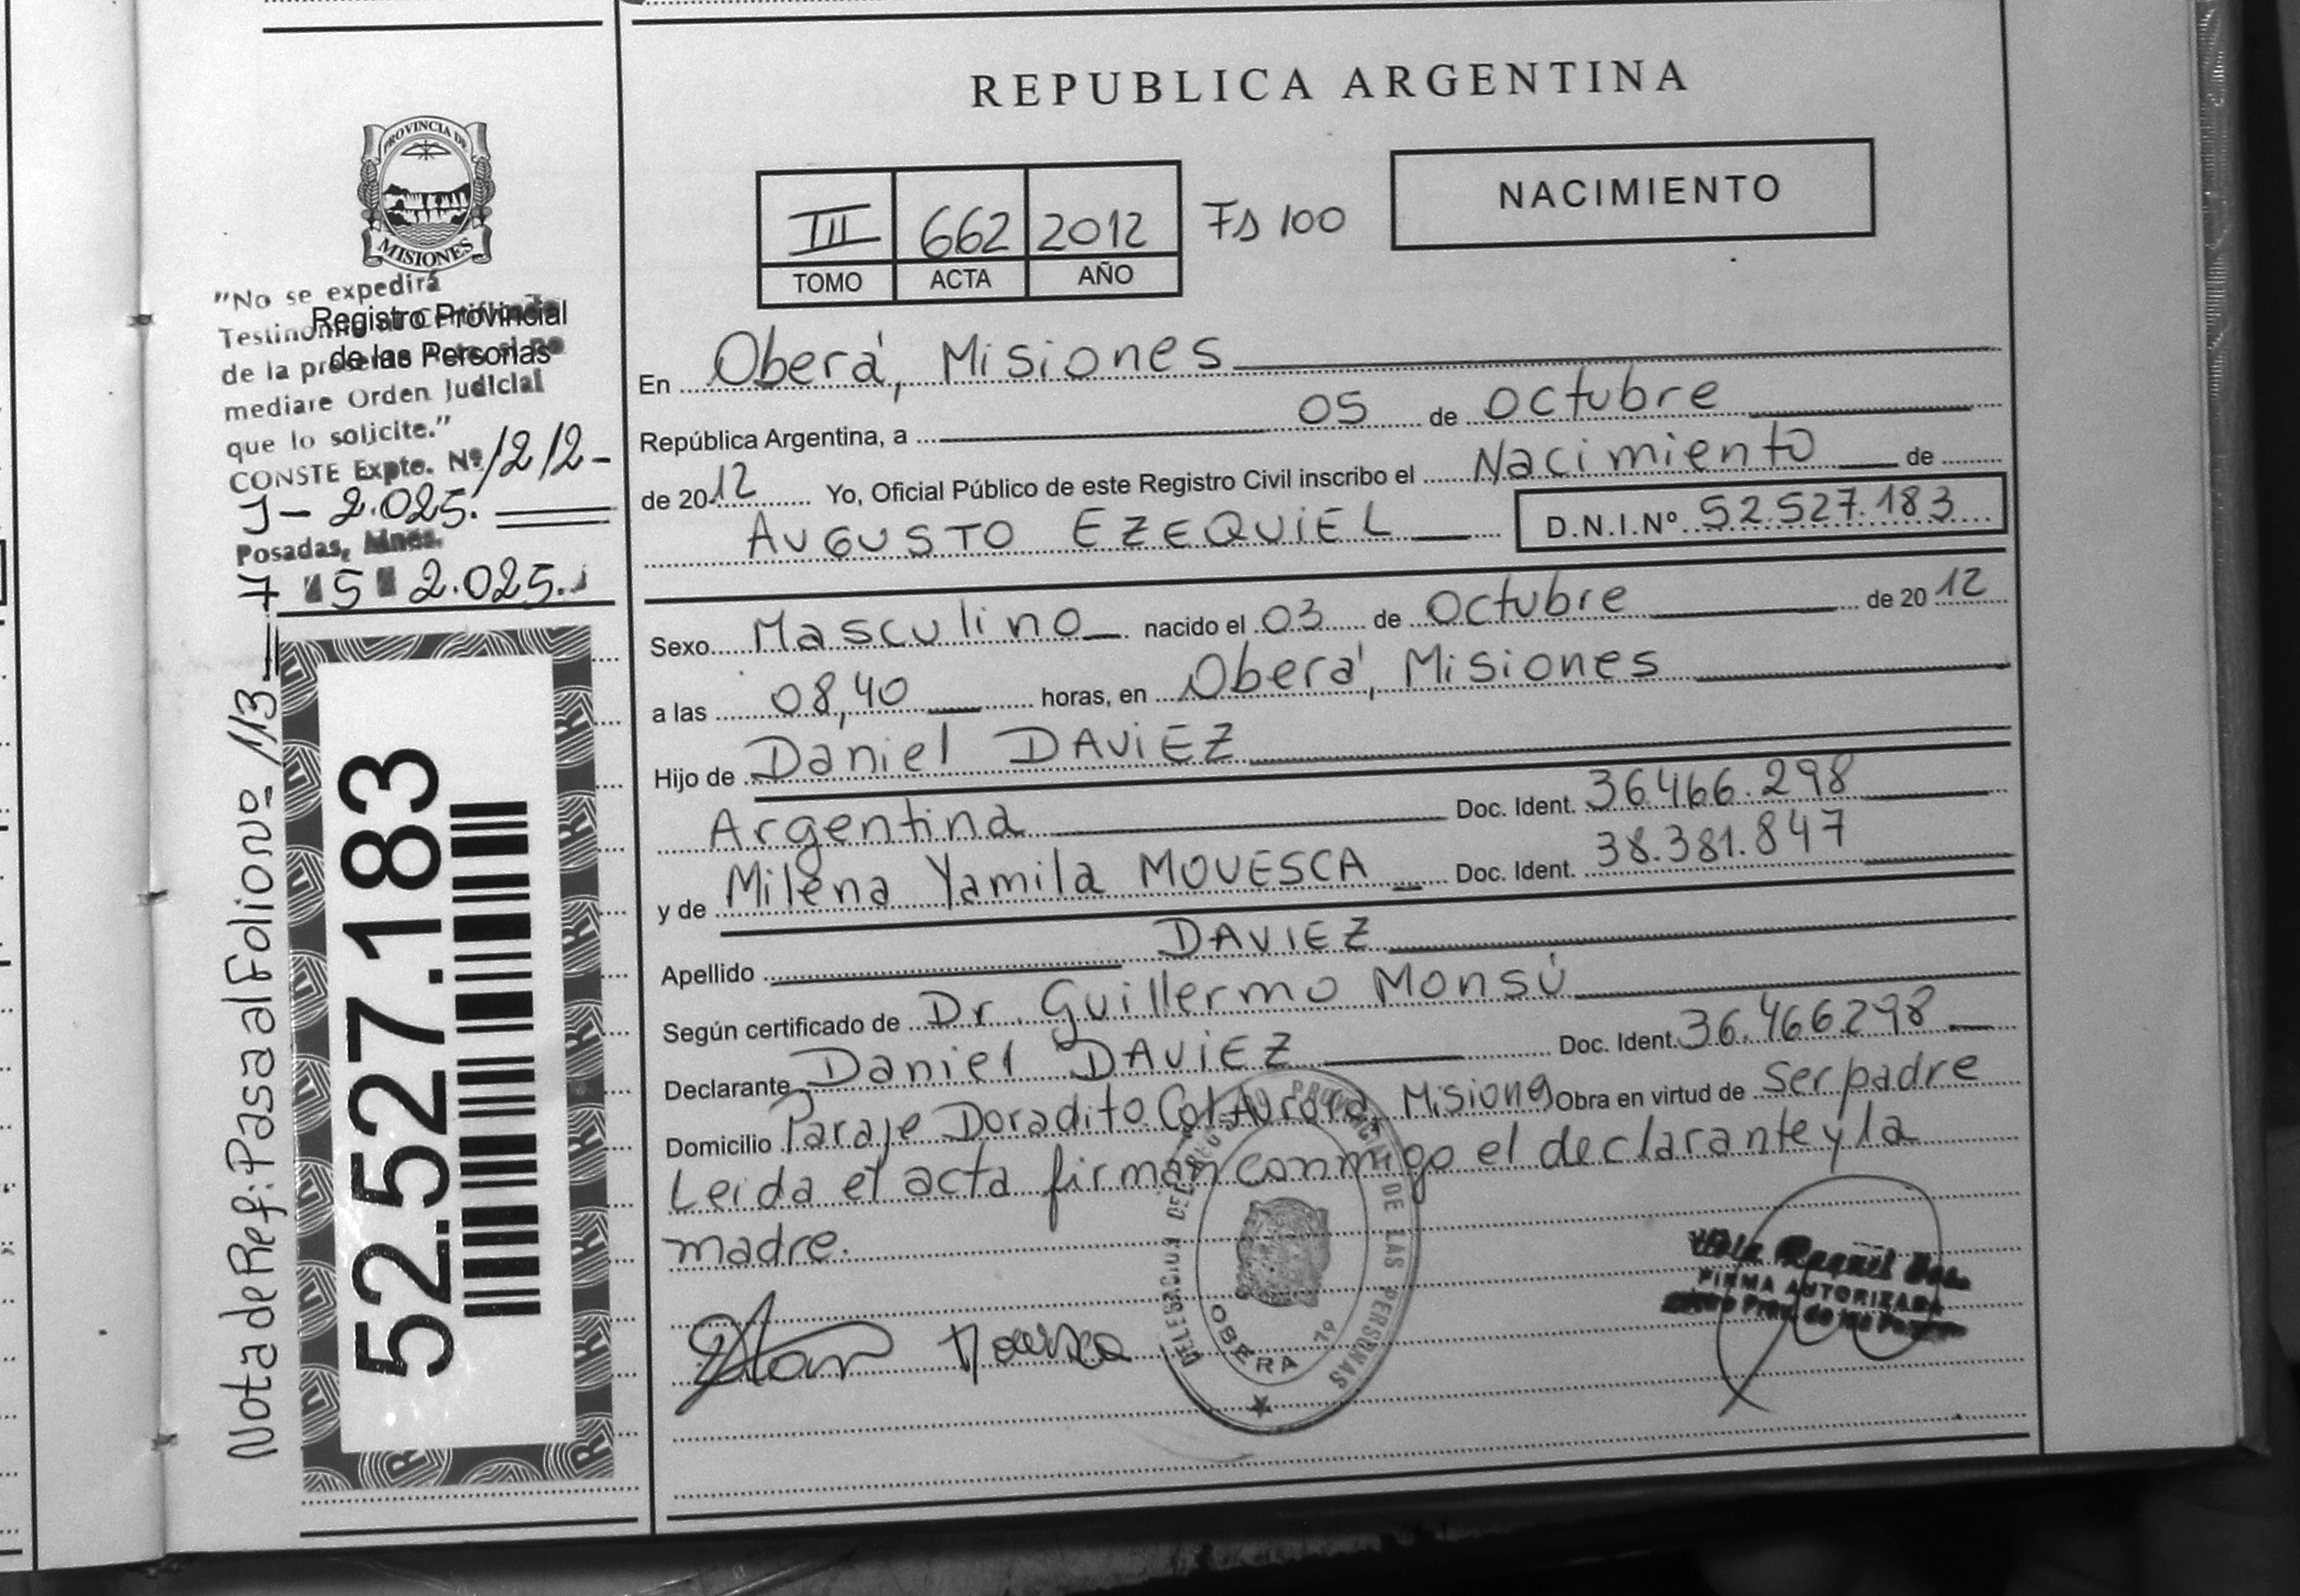 PROVINCIA DE
MISIONES
Registro Provincial
de las Personas
"No se expedirá
Testimonio
de la
mediare Orden Judicial
que lo solicite."
CONSTE Expte. Nº 1212-
J- 2.025.
Posadas, Mnes.
7 5 2.025.
Nota de Ref: Pasa al Folio Nº 113
52.527.183
REPUBLICA ARGENTINA
III 662 2012 Fs 100
TOMO ACTA AÑO
NACIMIENTO
En Oberá, Misiones
República Argentina, a 05 de octubre
de 2012 Yo, Oficial Público de este Registro Civil inscribo el Nacimiento de
AUGUSTO EZEQUIEL D.N.I.Nº 52.527.183
Sexo Masculino nacido el 03 de octubre de 2012
a las 08,40 horas, en Oberá, Misiones
Hijo de Daniel DAVIEZ
Argentina Doc. Ident. 36466.298
y de Milena Yamila MOVESCA Doc. Ident. 38.381.847
Apellido DAVIEZ
Según certificado de Dr. Guillermo Monsú
Declarante Daniel DAVIEZ Doc. Ident. 36.466298
Domicilio Paraje Doradito Col Aurora, Misiones Obra en virtud de ser padre
Leida el acta firman conmigo el declarante y la
madre.
PROVINCIAL DE LAS PERSONAS
OBERA
FIRMA AUTORIZADA